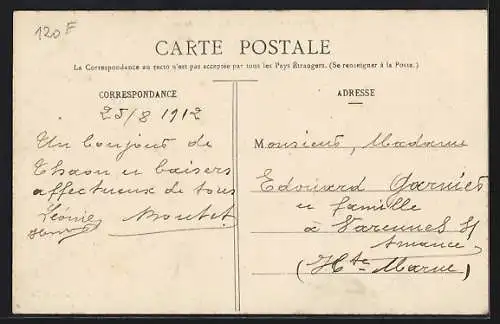 120 F
CARTE POSTALE
La Correspondance au recto n'est pas acceptée par tous les Pays Étrangers. (Se renseigner à la Poste.)
CORRESPONDANCE
25/8 1912
Un bonjour de
Thaon et baisers
affectueux de tous
Léonie Boutet
Henri
ADRESSE
Monsieur, Madame
Edouard Garnier
et famille
à Varennes s/
Amance
(Hte Marne)